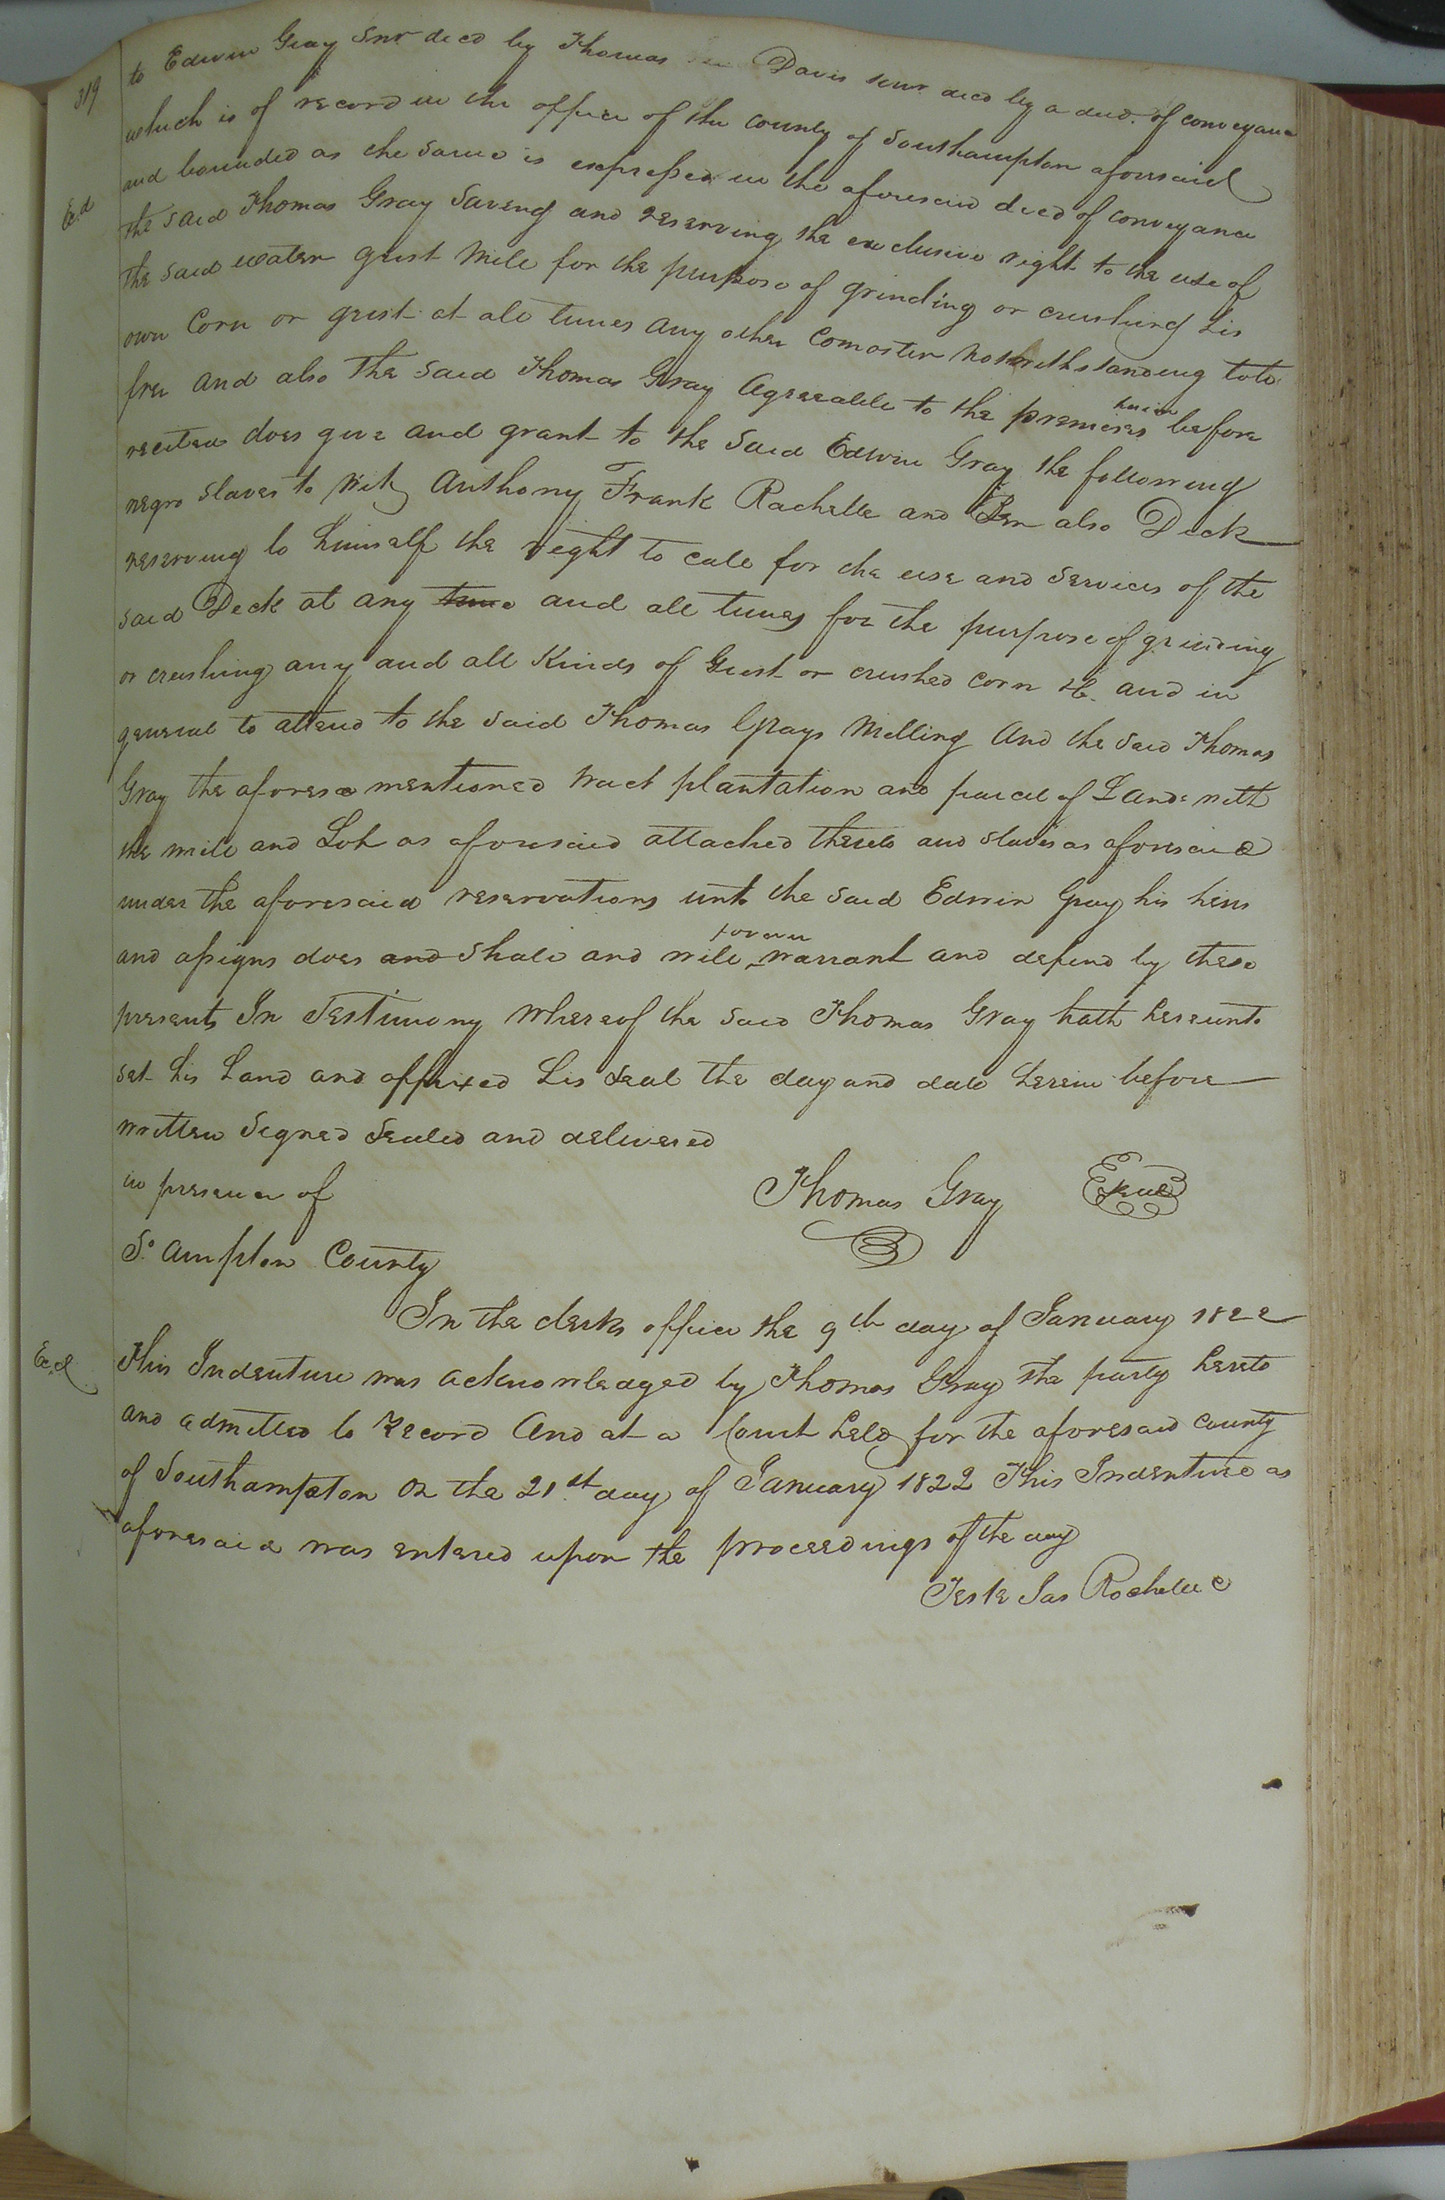 319
to Edwin Gray Snr decd by Thomas Davis senr decd by a deed of conveyance
which is of record in the office of the county of Southampton aforesaid
and bounded as the same is expressed in the aforesaid deed of conveyance
Exd
the said Thomas Gray Saving and reserving the exclusive right to the use of
the said water grist Mill for the purpose of grinding or crushing his
own Corn or grist at all times any other Comoster Notwithstanding toto
free and also the said Thomas Gray Agreeable to the premises herein before
recited does give and grant to the said Edwin Gray the following
negro slaves to Wit, Anthony Frank Rachelle and Ben also Dick
reserving to himself the right to call for the use and services of the
said Dick at any time and all times for the purpose of grinding
or crushing any and all Kinds of Grist or crushed corn &c. and in
general to attend to the said Thomas Grays Milling And the said Thomas
Gray the aforesd mentioned tract plantation and parcel of Land with
the mill and Lot as aforesaid attached thereto and slaves as aforesaid
under the aforesaid reservations unto the said Edwin Gray his heirs
and assigns does and shall and will forever warrant and defend by these
presents In Testimony Whereof the said Thomas Gray hath hereunto
set his hand and affixed his seal the day and date herein before
written Signed Sealed and delivered
in presence of
Thomas Gray Seal
So. ampton County
In the clerks office the 9th day of January 1822
Exd
This Indenture was acknowledged by Thomas Gray the party hereto
and admitted to Record And at a Court held for the aforesaid county
of Southampton on the 21st day of January 1822 This Indenture as
aforesaid was entered upon the proceedings of the day
Teste Jas Rochelle C